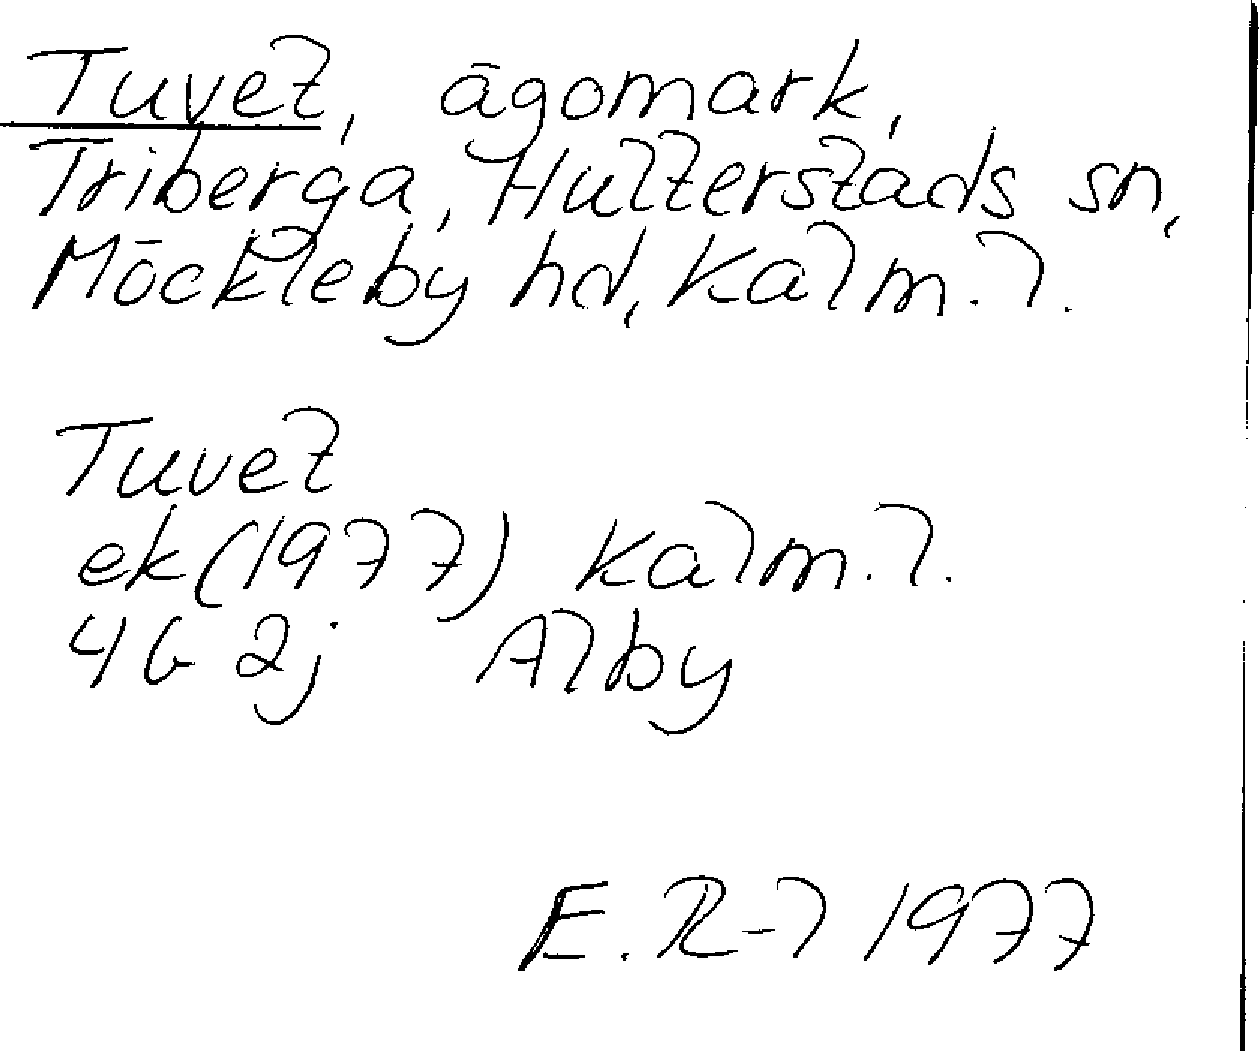 Tuvet, ägomark,
Triberga, Hulterstads sn,
Möckleby hd, Kalm. l.
Tuvet
ek (1977) Kalm. l.
4G 2j Alby
E. R-l 1977